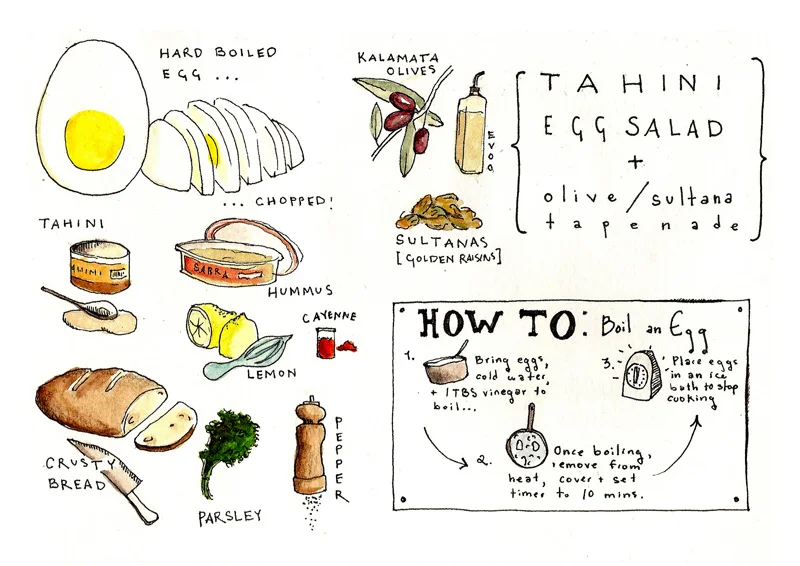 HARD BOILED
EGG ...
... CHOPPED!
KALAMATA
OLIVES
EVOO
SULTANAS
[GOLDEN RAISINS]
TAHINI
EGG SALAD
+
olive/sultana
tapenade
TAHINI
AHINI
SABRA
HUMMUS
CAYENNE
LEMON
CRUSTY
BREAD
PARSLEY
PEPPER
HOW TO: Boil an Egg
1. Bring eggs,
cold water,
+ 1 TBS vinegar to
boil...
2. Once boiling,
remove from
heat, cover + set
timer to 10 mins.
3. Place eggs
in an ice
bath to stop
cooking